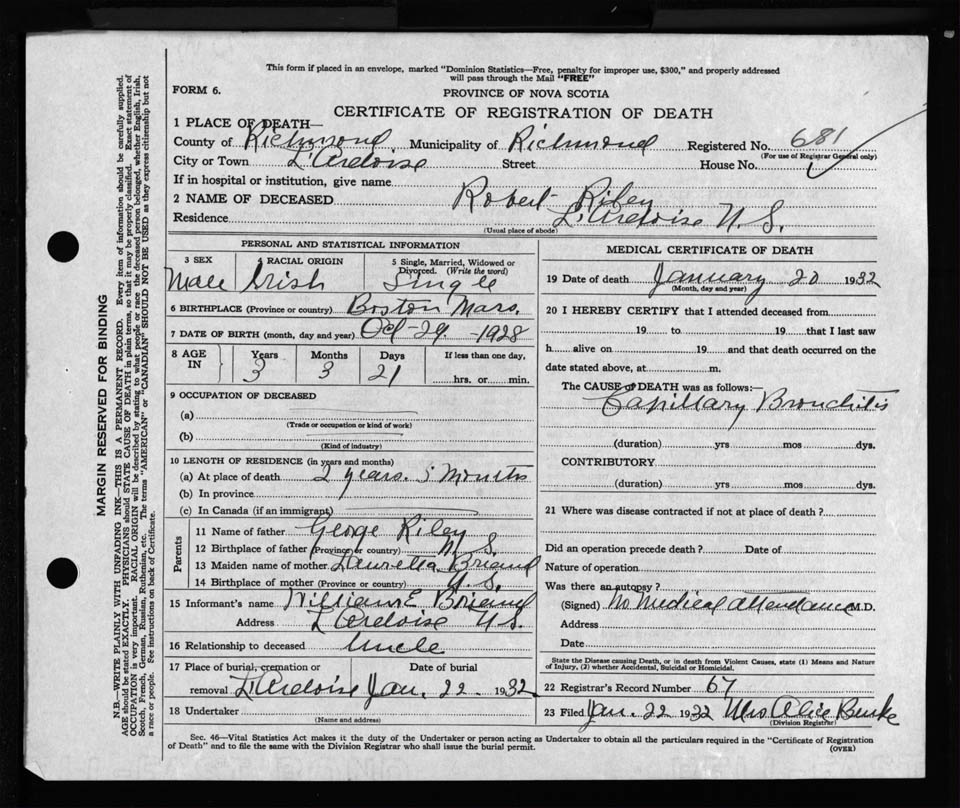 This form if placed in an envelope, marked "Dominion Statistics—Free, penalty for improper use, $300," and properly addressed
will pass through the Mail "FREE"
FORM 6.
PROVINCE OF NOVA SCOTIA
CERTIFICATE OF REGISTRATION OF DEATH
1 PLACE OF DEATH—
County of Richmond, Municipality of Richmond Registered No. 681
(For use of Registrar General only)
City or Town L'Ardoise Street House No.
If in hospital or institution, give name
2 NAME OF DECEASED Robert Riley
Residence L'Ardoise N.S.
(Usual place of abode)
PERSONAL AND STATISTICAL INFORMATION
3 SEX 4 RACIAL ORIGIN 5 Single, Married, Widowed or
Divorced. (Write the word)
Male Irish Single
6 BIRTHPLACE (Province or country) Boston Mass.
7 DATE OF BIRTH (month, day and year) Oct-29-1928
8 AGE IN Years Months Days If less than one day,
3 3 21 hrs. or min.
9 OCCUPATION OF DECEASED
(a)
(Trade or occupation or kind of work)
(b)
(Kind of industry)
10 LENGTH OF RESIDENCE (in years and months)
(a) At place of death 2 years. 5 Months
(b) In province
(c) In Canada (if an immigrant)
Parents
11 Name of father George Riley
12 Birthplace of father (Province or country) N.S.
13 Maiden name of mother Lauretta Briand
14 Birthplace of mother (Province or country) N.S.
15 Informant's name William E Briand
Address L'Ardoise N.S.
16 Relationship to deceased Uncle
17 Place of burial, cremation or Date of burial
removal L'Ardoise Jan. 22. 1932
18 Undertaker
(Name and address)
MEDICAL CERTIFICATE OF DEATH
19 Date of death January 20 1932
(Month, day and year)
20 I HEREBY CERTIFY that I attended deceased from
19 to 19 that I last saw
h alive on 19 and that death occurred on the
date stated above, at m.
The CAUSE of DEATH was as follows:—
Capillary Bronchitis
(duration) yrs mos dys.
CONTRIBUTORY
(duration) yrs mos dys.
21 Where was disease contracted if not at place of death?
Did an operation precede death? Date of
Nature of operation
Was there an autopsy?
(Signed) No Medical attendance M.D.
Address
Date
State the Disease causing Death, or in death from Violent Causes, state (1) Means and Nature
of Injury, (2) whether Accidental, Suicidal or Homicidal.
22 Registrar's Record Number 67
23 Filed Jan. 22 1932 Mrs Alice Burke
(Division Registrar)
Sec. 46—Vital Statistics Act makes it the duty of the Undertaker or person acting as Undertaker to obtain all the particulars required in the "Certificate of Registration
of Death" and to file the same with the Division Registrar who shall issue the burial permit.
(OVER)
MARGIN RESERVED FOR BINDING
N.B.—WRITE PLAINLY WITH UNFADING INK—THIS IS A PERMANENT RECORD. Every item of information should be carefully supplied.
AGE should be stated EXACTLY. PHYSICIANS should STATE CAUSE OF DEATH in plain terms, so that it may be properly classified. Exact statement of
OCCUPATION is very important. RACIAL ORIGIN will be described by stating to what people or race the deceased person belonged, whether English, Irish,
Scotch, French, German, Russian, Ruthenian, etc. The terms "AMERICAN" or "CANADIAN" SHOULD NOT BE USED as they express citizenship but not
a race or people. See instructions on back of Certificate.